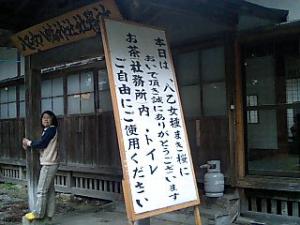 本日は、八乙女種まき桜に
おいで頂き誠にありがとうございます
お茶社務所内、トイレ
ご自由にご使用ください